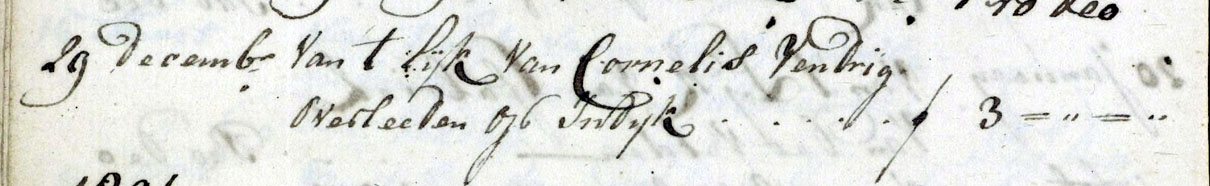 Pro deo
29 decemb^r Van t lijk Van Cornelis Vendrig
Overleeden op Indijk . . . . . ƒ 3 = " = "